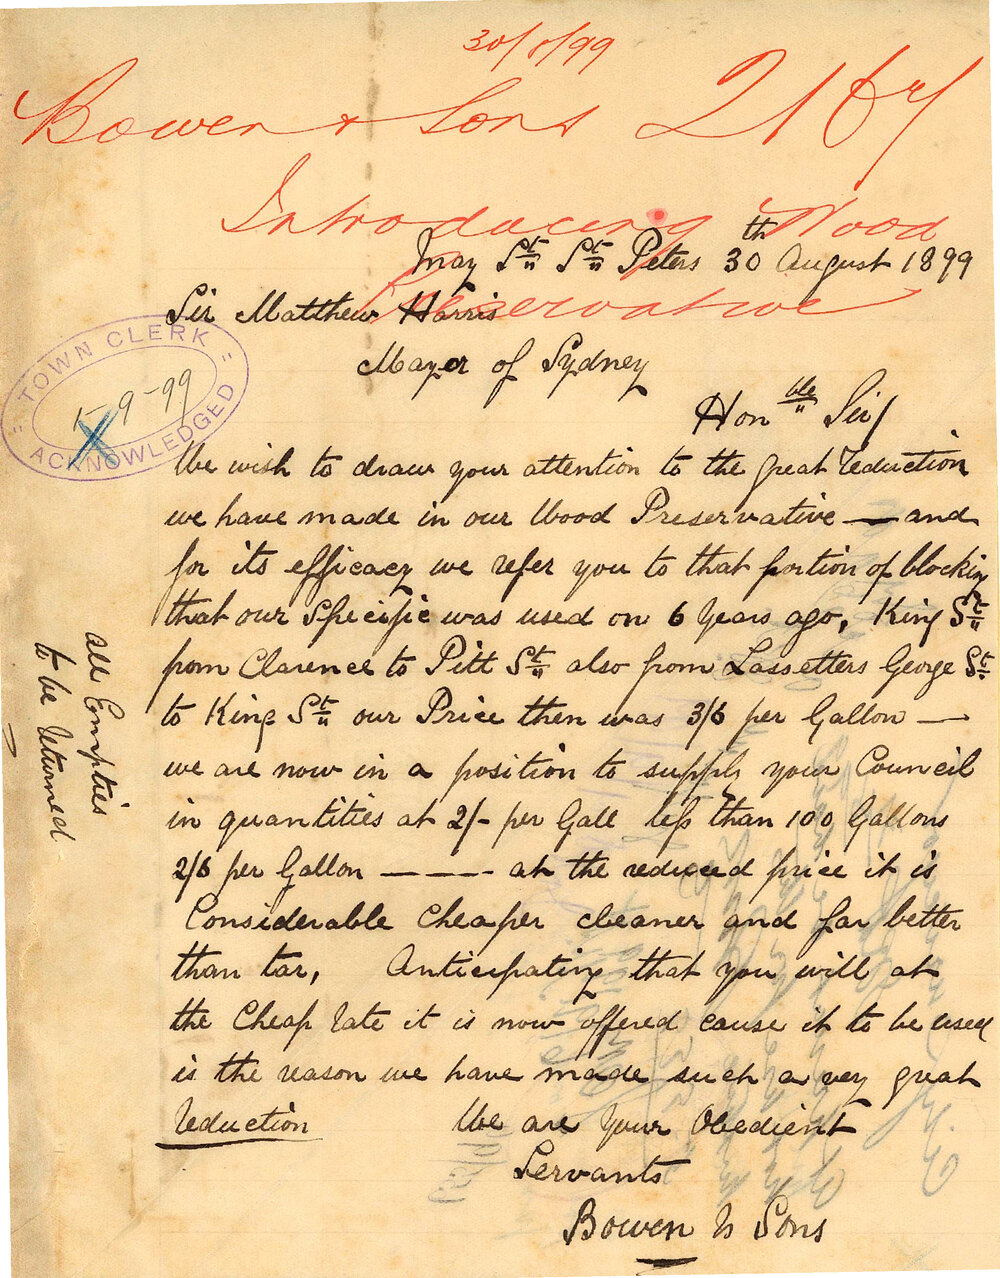 30/8/99
Bowen & Sons 2167
Introducing Wood
Preservative
May St St Peters 30th August 1899
Sir Matthew Harris
Mayor of Sydney
Honble Sir/
TOWN CLERK
1-9-99
ACKNOWLEDGED
We wish to draw your attention to the great reduction
we have made in our Wood Preservative — and
for its efficacy we refer you to that portion of blocking
that our Specific was used on 6 Years ago, King St
from Clarence to Pitt St also from Lassetters George St
to King St our Price then was 3/6 per Gallon —
we are now in a position to supply your Council
in quantities at 2/- per Gall less than 100 Gallons
2/6 per Gallon — — — - at the reduced price it is
Considerable Cheaper cleaner and far better
than tar, Anticipating that you will at
the Cheap rate it is now offered cause it to be used
is the reason we have made such a very great
reduction We are Your Obedient
Servants
Bowen & Sons
All Empties
to be returned